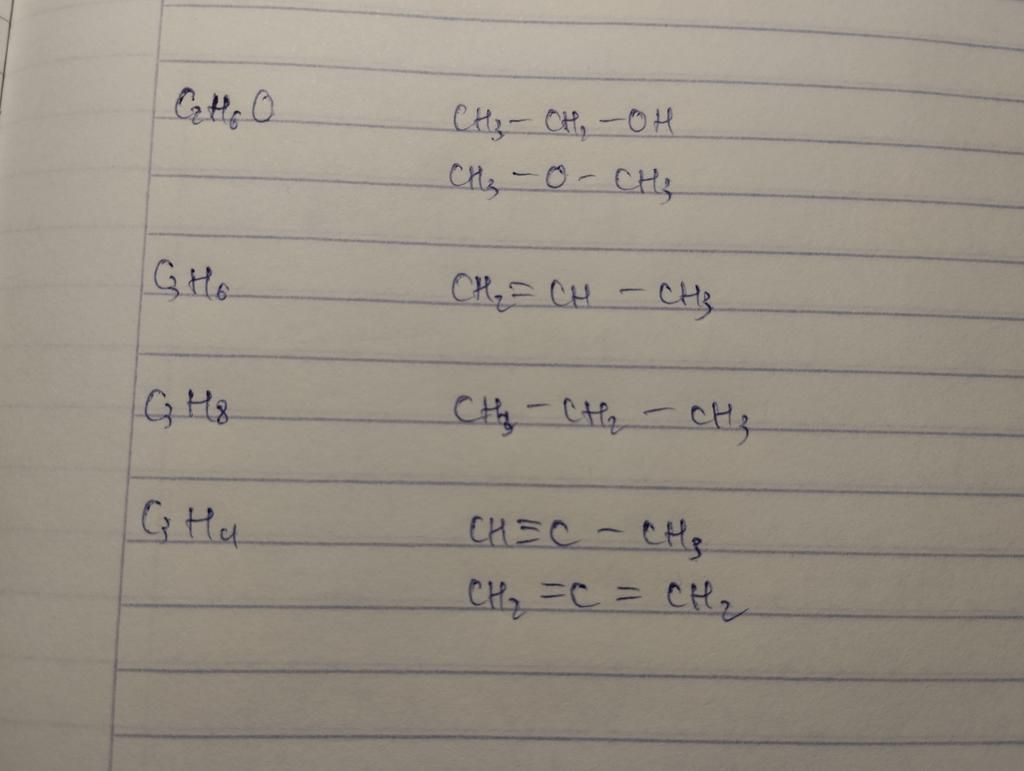 C₂H₆O CH₃ - CH₂ - OH
CH₃ - O - CH₃
C₃H₆ CH₂ = CH - CH₃
C₃H₈ CH₃ - CH₂ - CH₃
C₃H₄ CH ≡ C - CH₃
CH₂ = C = CH₂